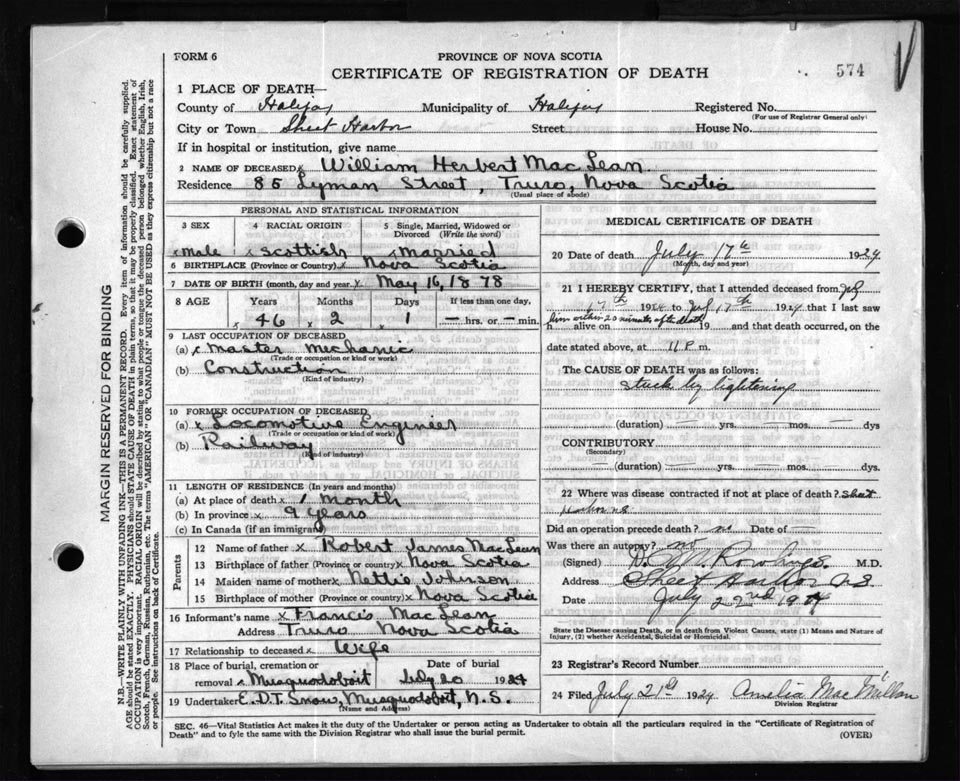 FORM 6
PROVINCE OF NOVA SCOTIA
CERTIFICATE OF REGISTRATION OF DEATH
574
1 PLACE OF DEATH—
County of Halifax Municipality of Halifax Registered No.
(For use of Registrar General only)
City or Town Sheet Harbor Street House No.
If in hospital or institution, give name
2 NAME OF DECEASED x William Herbert MacLean
Residence 85 Lyman Street, Truro, Nova Scotia
(Usual place of abode)
PERSONAL AND STATISTICAL INFORMATION
3 SEX 4 RACIAL ORIGIN 5 Single, Married, Widowed or Divorced (Write the word)
x Male x Scottish x Married
6 BIRTHPLACE (Province or Country) x Nova Scotia
7 DATE OF BIRTH (month, day and year) x May 16, 1878
8 AGE Years Months Days If less than one day,
x 46 x 2 x 1 — hrs. or — min.
9 LAST OCCUPATION OF DECEASED
(a) x Master Mechanic
(Trade or occupation or kind or work)
(b) Construction
(Kind of industry)
10 FORMER OCCUPATION OF DECEASED
(a) x Locomotive Engineer
(Trade or occupation or kind of work)
(b) Railway
(Kind of industry)
11 LENGTH OF RESIDENCE (In years and months)
(a) At place of death x 1 Month
(b) In province x 9 years
(c) In Canada (if an immigrant)
Parents
12 Name of father x Robert James MacLean
13 Birthplace of father (Province or country) x Nova Scotia
14 Maiden name of mother x Nettie Johnson
15 Birthplace of mother (Province or country) x Nova Scotia
16 Informant's name x Francis MacLean
Address Truro Nova Scotia
17 Relationship to deceased x Wife
18 Place of burial, cremation or removal x Musquodoboit Date of burial July 20 1924
19 Undertaker E. D. T. Snow, Musquodoboit, N.S.
(Name and Address)
MEDICAL CERTIFICATE OF DEATH
20 Date of death July 17th 1924
(Month, day and year)
21 I HEREBY CERTIFY, that I attended deceased from July
17th 1924 to July 17th 1924 that I last saw
him within 20 minutes after death
h alive on 19 and that death occurred, on the
date stated above, at 11 P. m.
The CAUSE OF DEATH was as follows:
Stuck by lightening
(duration) — yrs. — mos. — dys
CONTRIBUTORY
(Secondary)
— (duration) — yrs. — mos. — dys.
22 Where was disease contracted if not at place of death? Sheet
Harbor N.S.
Did an operation precede death? no Date of —
Was there an autopsy? no
(Signed) Rowlings. M.D.
Address Sheet Harbor N.S.
Date July 22nd 1924
State the Disease causing Death, or in death from Violent Causes, state (1) Means and Nature of
Injury, (2) whether Accidental, Suicidal or Homicidal.
23 Registrar's Record Number
24 Filed July 21st 1924 Amelia MacMillan
Division Registrar
SEC. 46—Vital Statistics Act makes it the duty of the Undertaker or person acting as Undertaker to obtain all the particulars required in the "Certificate of Registration of
Death" and to fyle the same with the Division Registrar who shall issue the burial permit.
(OVER)
MARGIN RESERVED FOR BINDING
N.B.—WRITE PLAINLY WITH UNFADING INK—THIS IS A PERMANENT RECORD. Every item of information should be carefully supplied.
AGE should be stated EXACTLY. PHYSICIANS should STATE CAUSE OF DEATH in plain terms, so that it may be properly classified. Exact statement of
OCCUPATION is very important. RACIAL ORIGIN will be described by stating to what people or tongue the deceased person belonged whether English, Irish,
Scotch, French, German, Russian, Ruthenian, etc. The terms "AMERICAN" OR "CANADIAN" MUST NOT BE USED as they express citizenship but not a race
or people. See instructions on back of Certificate.